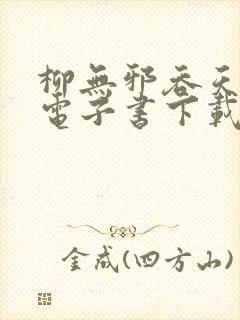 柳無邪吞天
電子書下載
金成(四方山)